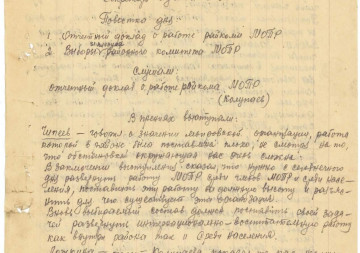 Повестка дня
1. Отчетный доклад о работе райкома МОПР
2. Выборы районного комитета МОПР
Слушали:
отчетный доклад о работе райкома МОПР
(Колупаев)
В прениях выступали:
говоря о значении мопровской организации, работа
которой в районе была поставлена плохо, не смотря на то,
что
В заключении выступающий сказал, что нужно с сегодняшнего
дня развернуть работу МОПР среди членов МОПР и среди насе-
ления, поставить эту работу на должную высоту и раз'яс-
нить для чего существует эта организация.
Вновь избираемый состав должен поставить своей зада-
чей развернуть интернационально-воспитательную работу
как внутри района так и среди населения.